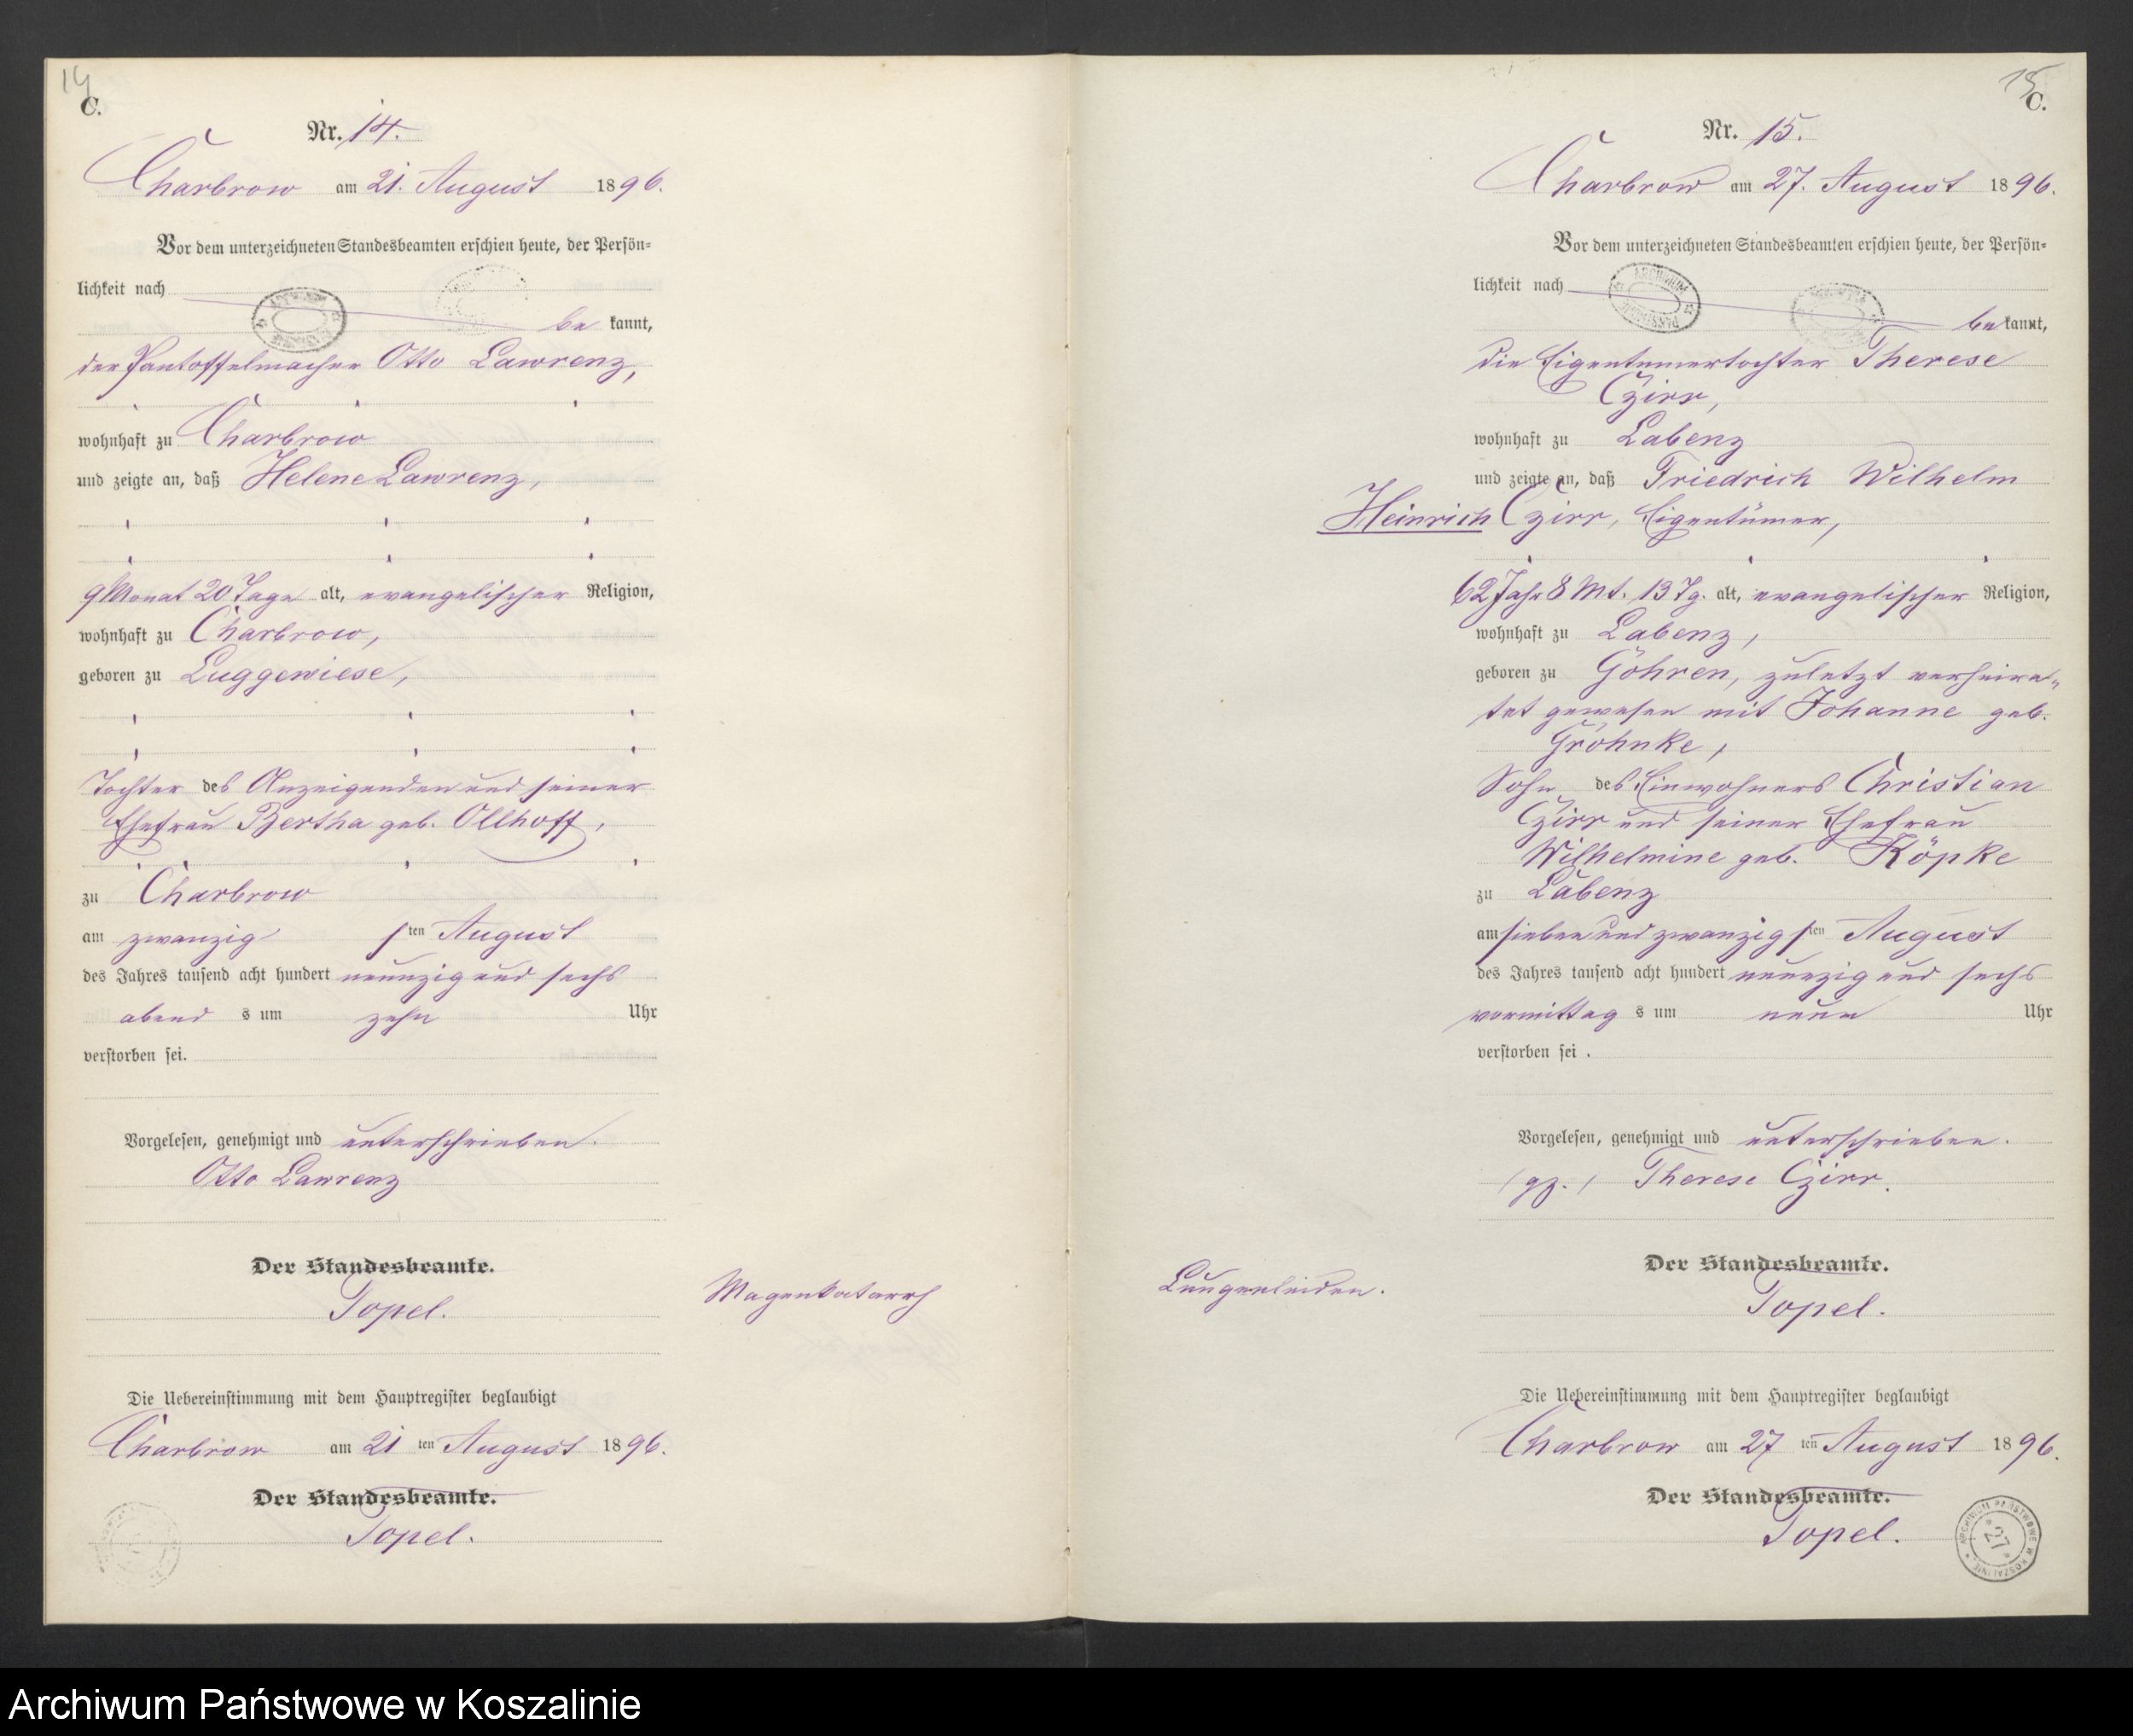 14
C.
Nr. 14.
Charbrow am 21. August 1896.
Vor dem unterzeichneten Standesbeamten erschien heute, der Persön-
lichkeit nach
be kannt,
der Pantoffelmacher Otto Lawrenz,
wohnhaft zu Charbrow
und zeigte an, daß Helene Lawrenz,
9 Monat 20 Tage alt, evangelischer Religion,
wohnhaft zu Charbrow,
geboren zu Luggewiese,
Tochter des Anzeigenden und seiner
Ehefrau Bertha geb. Ollhoff,
zu Charbrow
am zwanzig sten August
des Jahres tausend acht hundert neunzig und sechs
abend s um zehn Uhr
verstorben sei.
Vorgelesen, genehmigt und unterschrieben.
Otto Lawrenz
Der Standesbeamte.
Topel.
Magenkatarrh
Die Uebereinstimmung mit dem Hauptregister beglaubigt
Charbrow am 21 ten August 1896.
Der Standesbeamte.
Topel.
15
C.
Nr. 15.
Charbrow am 27. August 1896.
Vor dem unterzeichneten Standesbeamten erschien heute, der Persön-
lichkeit nach
be kannt,
die Eigentümertochter Therese
Czirr,
wohnhaft zu Labenz
und zeigte an, daß Friedrich Wilhelm
Heinrich Czirr, Eigentümer,
62 Jahr 8 Mt. 13 Tg. alt, evangelischer Religion,
wohnhaft zu Labenz,
geboren zu Gohren, zuletzt verheira-
tet gewesen mit Johanne geb.
Grohnke,
Sohn des Einwohners Christian
Czirr und seiner Ehefrau
Wilhelmine geb. Köpke
zu Labenz
am sieben und zwanzig sten August
des Jahres tausend acht hundert neunzig und sechs
vormittag s um neun Uhr
verstorben sei.
Vorgelesen, genehmigt und unterschrieben.
/gz./ Therese Czirr.
Der Standesbeamte.
Topel.
Lungenleiden.
Die Uebereinstimmung mit dem Hauptregister beglaubigt
Charbrow am 27 ten August 1896.
Der Standesbeamte.
Topel.
ARCHIWUM PAŃSTWOWE W KOSZALINIE
27
Archiwum Państwowe w Koszalinie